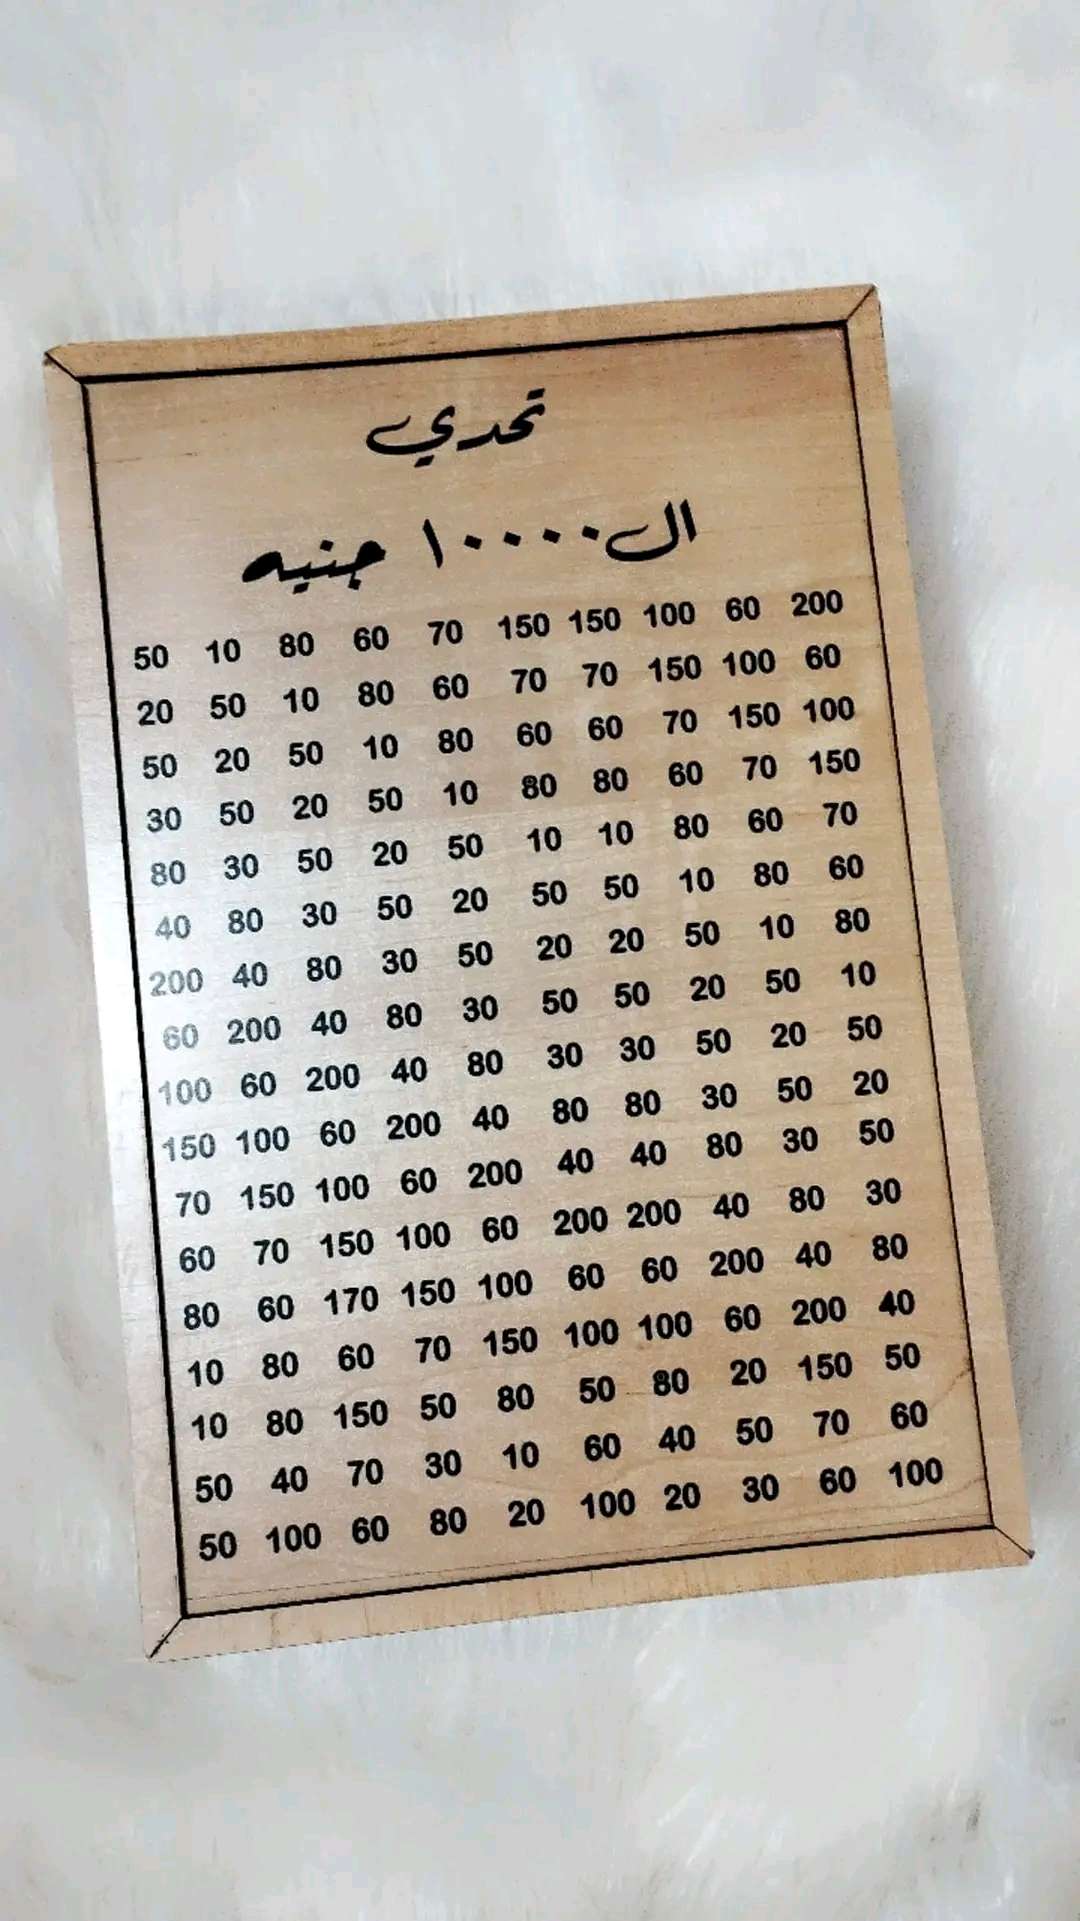 تحدي
ال١٠٠٠٠ جنيه
50 10 80 60 70 150 150 100 60 200
20 50 10 80 60 70 70 150 100 60
50 20 50 10 80 60 60 70 150 100
30 50 20 50 10 80 80 60 70 150
80 30 50 20 50 10 10 80 60 70
40 80 30 50 20 50 50 10 80 60
200 40 80 30 50 20 20 50 10 80
60 200 40 80 30 50 50 20 50 10
100 60 200 40 80 30 30 50 20 50
150 100 60 200 40 80 80 30 50 20
70 150 100 60 200 40 40 80 30 50
60 70 150 100 60 200 200 40 80 30
80 60 170 150 100 60 60 200 40 80
10 80 60 70 150 100 100 60 200 40
10 80 150 50 80 50 80 20 150 50
50 40 70 30 10 60 40 50 70 60
50 100 60 80 20 100 20 30 60 100